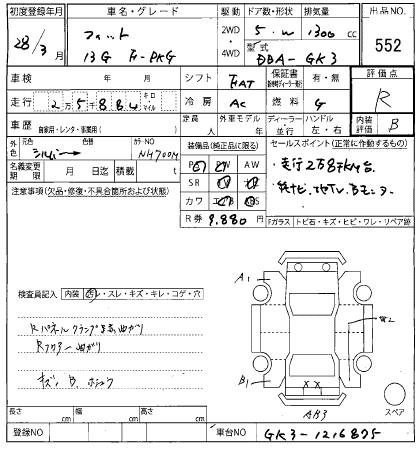 初度登録年月 車名・グレード 駆動 ドア数・形状 排気量 出品NO.
28/3月 フィット 2WD・4WD 5・W 1300cc 552
13G F-PKG 型式 DBA-GK3
車検 年 月 シフト FAT 保証書 有・無 評価点
走行 2万5千884 キロ マイル 冷房 AC 燃料 G R
車歴 自家用・レンタ・事業用( ) 定員 人 外車モデル 年 ディーラー・並行 ハンドル 左・右 内装評価 B
外色 元色 シルバー 色替 カラーNO NH700M 装備品(純正品に限る) セールスポイント(正常に作動するもの)
名義変更期限 月 日迄 積載 t PS PW AW
注意事項(欠品・修復・不具合箇所および状態) SR
カワ
R券 9.880円
・走行2万6千Km台.
Fガラス トビ石・キズ・ヒビ・ワレ・リペア跡
検査員記入 内装 汚レ・スレ・キズ・キレ・コゲ・穴
A1
Rパネルクランプ曲がり
Rフロアー曲がり
B1
X X
AB3
スペア
長さ cm 幅 cm 高さ cm
登録NO 車台NO GK3-1216875